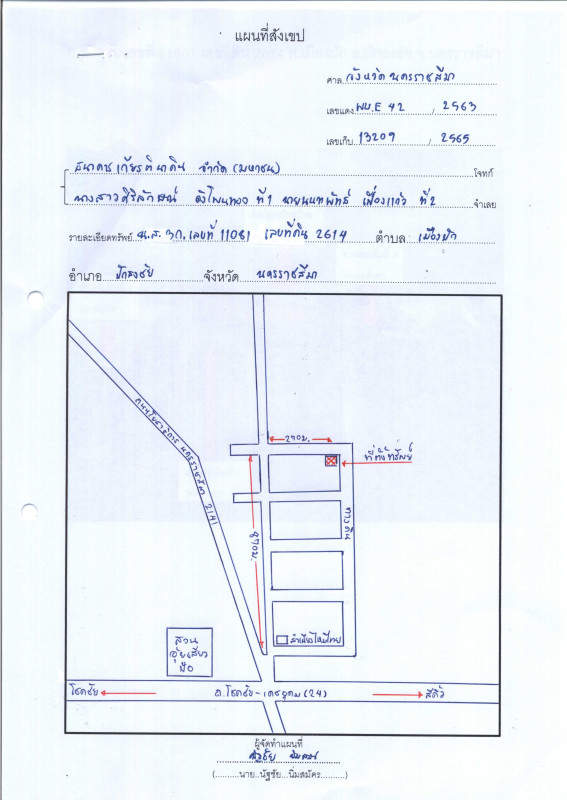 แผนที่สังเขป
ศาล จังหวัดนครราชสีมา
เลขแดง ผบ.E 42 / 2563
เลขเก็บ 13209 / 2565
ธนาคารเกียรตินาคิน จำกัด (มหาชน) โจทก์
นางสาวศิริลักษณ์ ที่1 นายนนทพัทธ์ เฟื่องแก้ว ที่2 จำเลย
รายละเอียดทรัพย์ น.ส.3ก. เลขที่ 11081 เลขที่ดิน 2614 ตำบล เมืองปัก
อำเภอ ปักธงชัย จังหวัด นครราชสีมา
240ม.
ที่ตั้งทรัพย์
นครราชสีมา 2141
ทางดิน
สวน
โชคชัย
ถ.โชคชัย-เดชอุดม (24)
สีคิ้ว
ผู้จัดทำแผนที่
(.........นาย..นัฐชัย...นิ่มสมัคร..........)